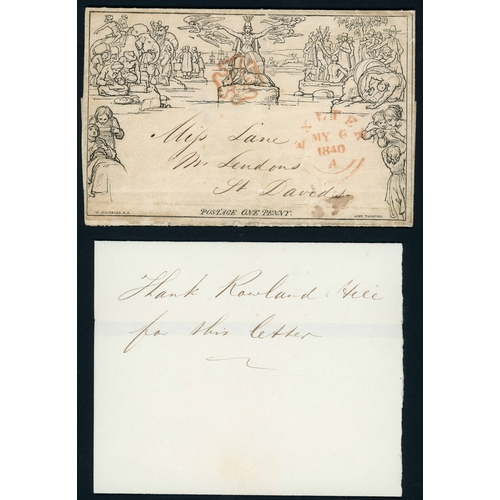 Miss Lane
Mr Lendons
St Davids
EXETER
MY 6
1840
A
W. MULREADY. R.A.
POSTAGE ONE PENNY.
JOHN THOMPSON
Thank Rowland Hill
for this letter